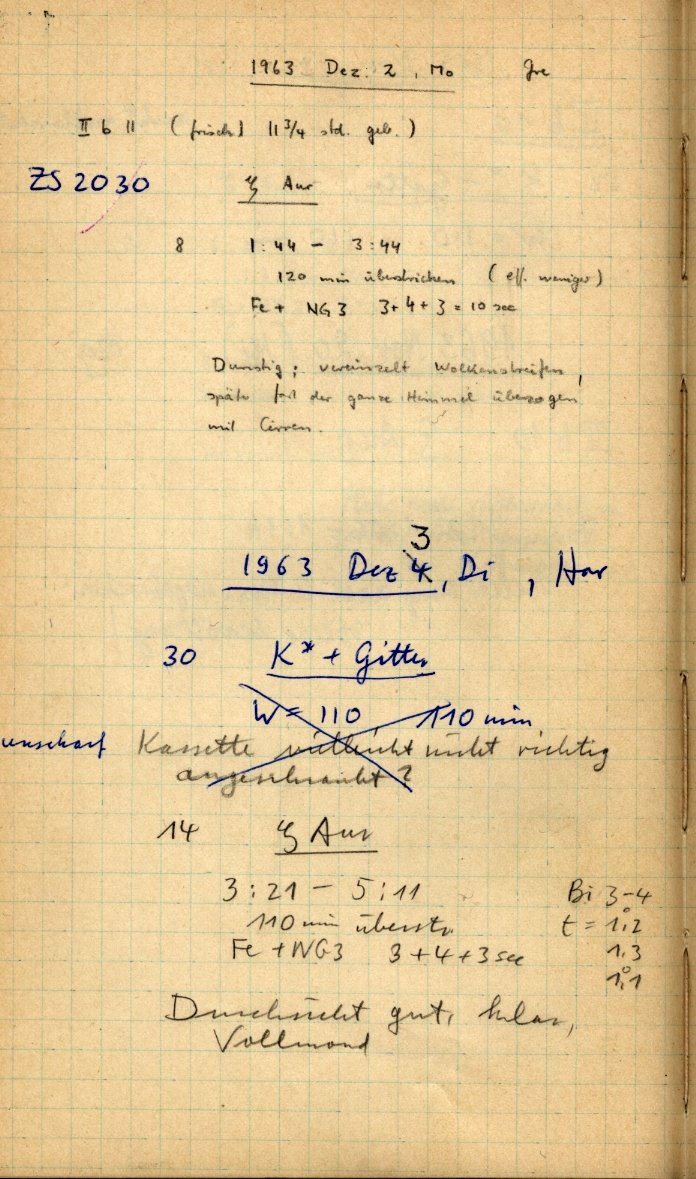 1963 Dez. 2, Mo Gre
II b 11 (frisch) 11 3/4 std. geb.)
ZS 2030
ζ Aur
8 1:44 – 3:44
120 min überstrichen (eff. weniger)
Fe + NG3 3+4+3 = 10 sec
Dunstig; vereinzelt Wolkenstreifen,
später fast der ganze Himmel überzogen
mit Cirren.
3
1963 Dez 4, Di, Har
30 K* + Gitter
W = 110 110 min
unscharf Kassette vielleicht nicht richtig
angeschraubt?
14 ζ Aur
3:21 – 5:11 Bi 3–4
110 min überstr. t = 1°,2
Fe + NG3 3+4+3 sec 1,3
1°,1
Durchsicht gut, klar,
Vollmond